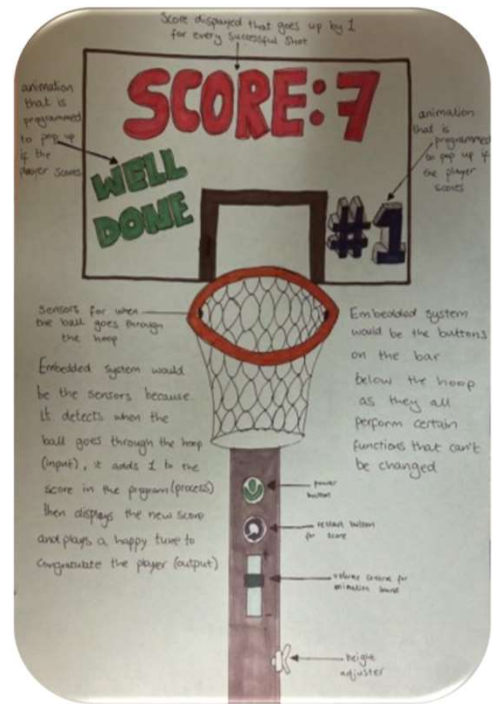 Score displayed that goes up by 1
for every successful shot
animation
that is
programmed
to pop up
if the
player scores
SCORE:7
WELL
DONE
#1
animation
that is
programmed
to pop up if
the player
scores
Sensors for when
the ball goes through
the hoop
Embedded system would
be the sensors because
it detects when the
ball goes through the hoop
(input), it adds 1 to the
score in the program (process)
then displays the new score
and plays a happy tune to
congratulate the player (output)
Embedded system
would be the buttons
on the bar
below the hoop
as they all
perform certain
functions that can't
be changed
power
button
restart button
for score
volume control for
animation sound
height
adjuster